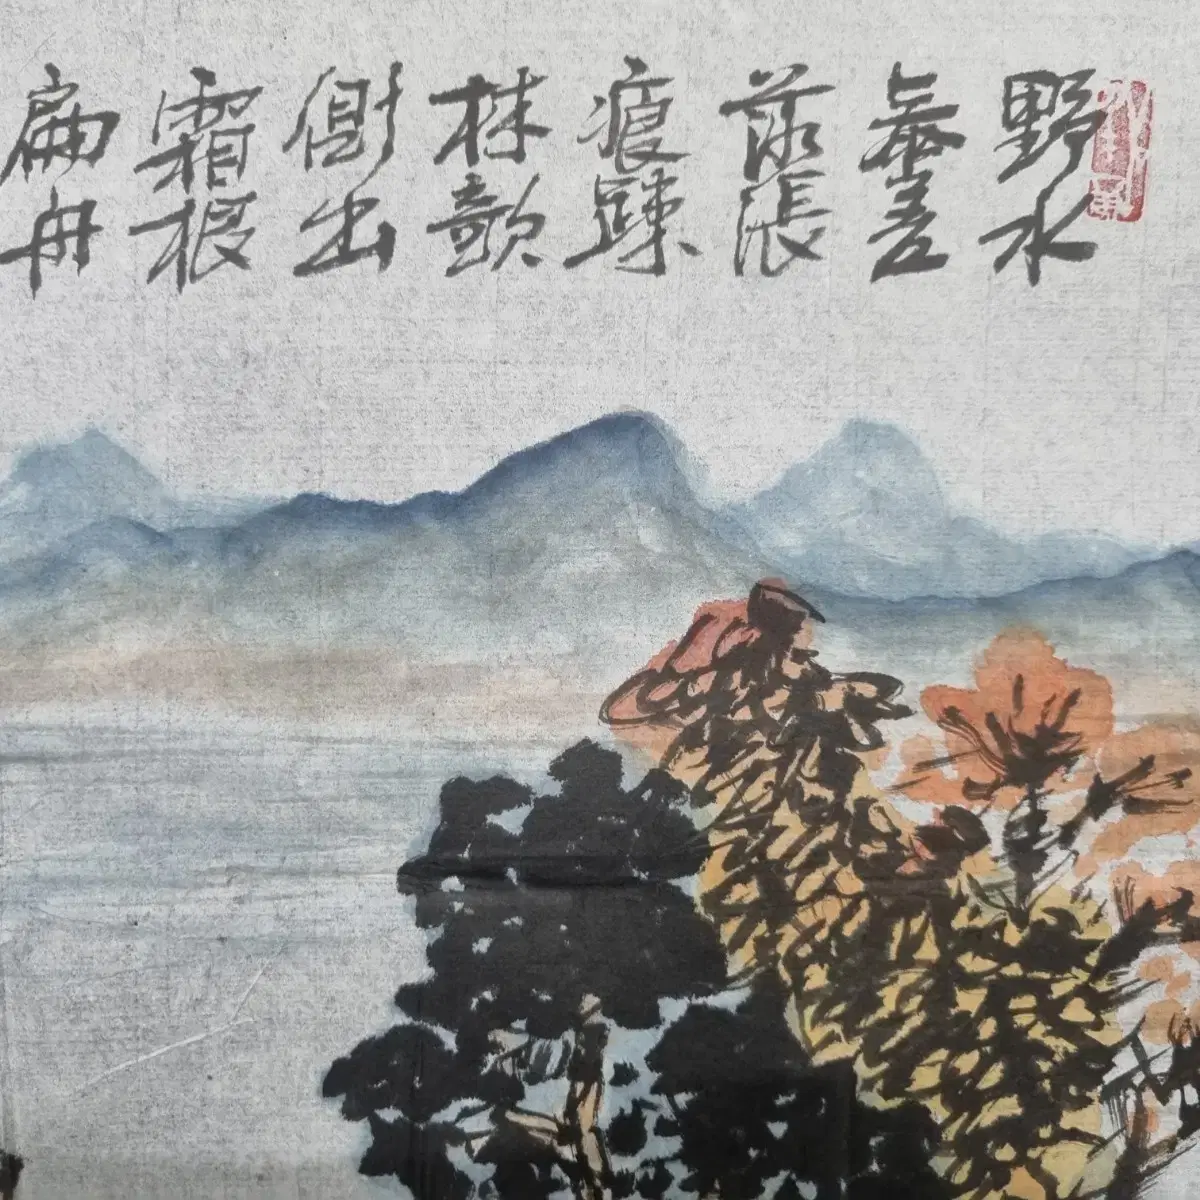 野水
參差
落漲
痕踈
林欹
倒出
霜根
扁舟